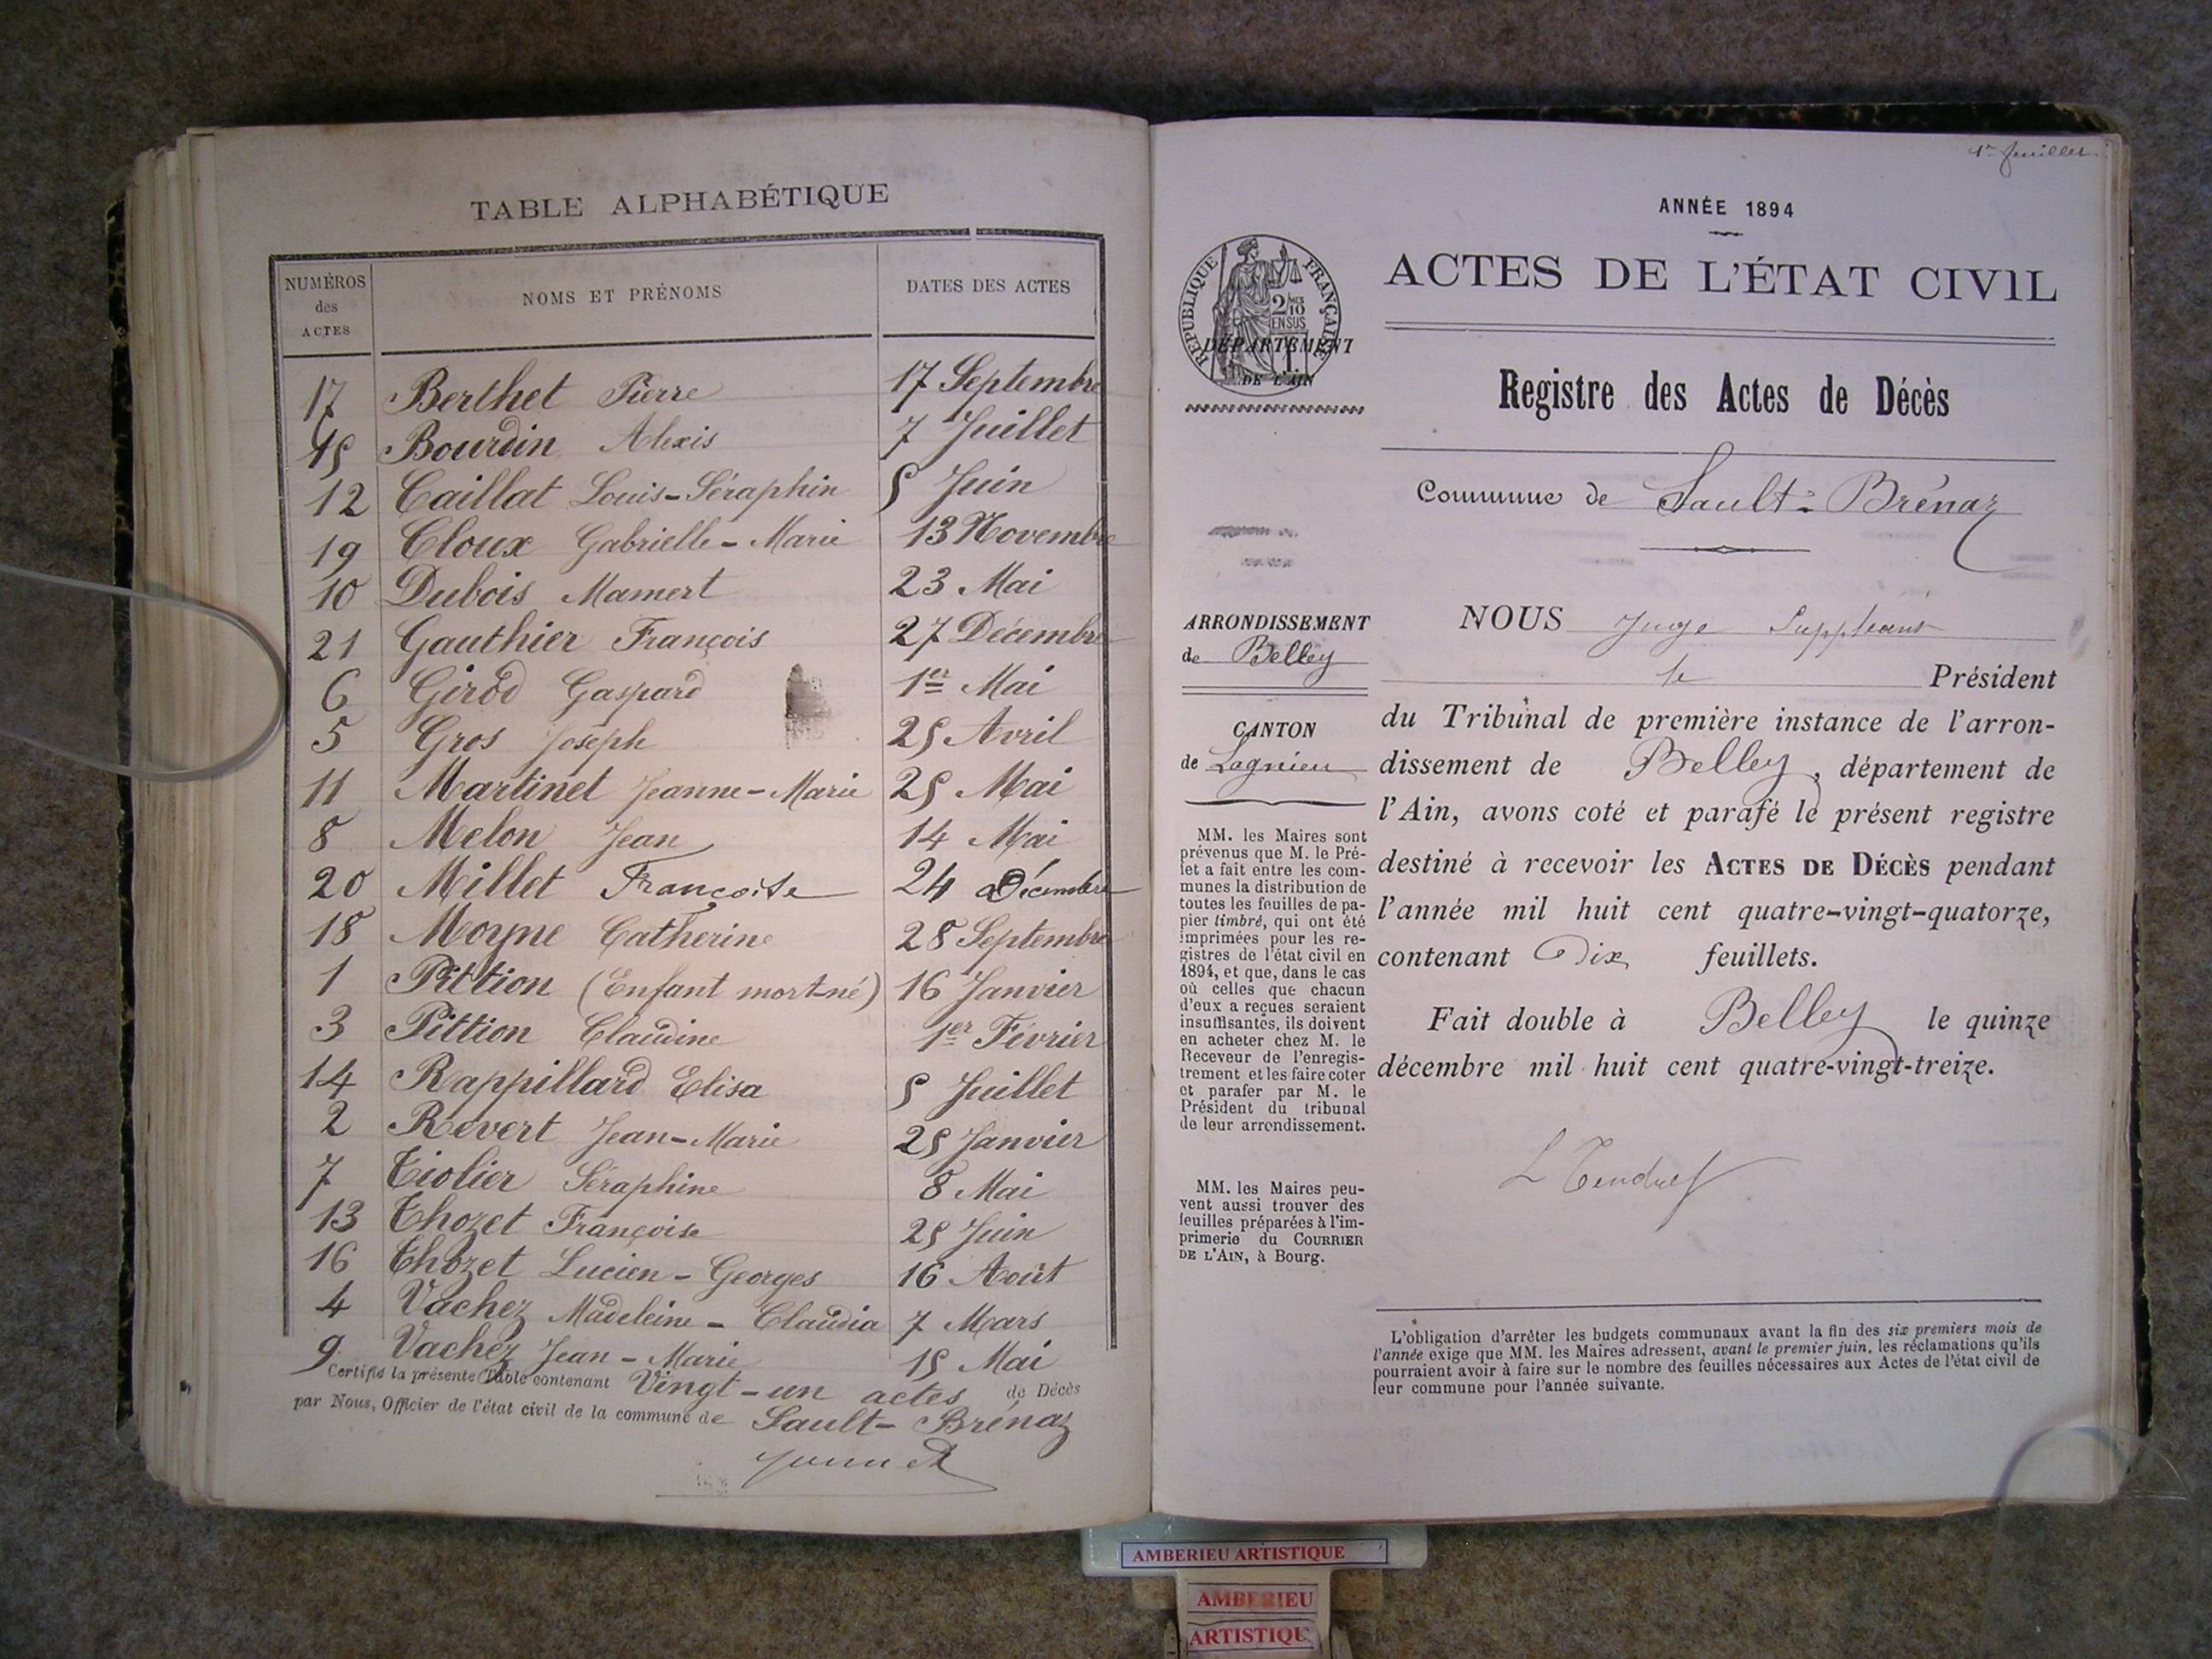 TABLE ALPHABÉTIQUE
NUMÉROS des ACTES NOMS ET PRÉNOMS DATES DES ACTES
17 Berthet Pierre 17 Septembre
15 Bourdin Alexis 7 Juillet
12 Caillat Louis-Séraphin 5 Juin
19 Cloux Gabrielle-Marie 13 Novembre
10 Dubois Mamert 23 Mai
21 Gauthier François 27 Décembre
6 Girod Gaspard 1er Mai
5 Gros Joseph 25 Avril
11 Martinet Jeanne-Marie 25 Mai
8 Melon Jean 14 Mai
20 Millet Françoise 24 Décembre
18 Moyne Catherine 28 Septembre
1 Pittion (Enfant mort-né) 16 Janvier
3 Pittion Claudine 1er Février
14 Rappillard Elisa 5 Juillet
2 Revert Jean-Marie 25 Janvier
7 Tiolier Séraphine 8 Mai
13 Thozet Françoise 25 Juin
16 Thozet Lucien-Georges 16 Août
4 Vachez Madeleine-Claudia 7 Mars
9 Vachez Jean-Marie 15 Mai
Certifié la présente Table contenant Vingt-un actes de Décès
par Nous, Officier de l'état civil de la commune de Sault-Brénaz
1er feuillet.
ANNÉE 1894
ACTES DE L'ÉTAT CIVIL
RÉPUBLIQUE FRANÇAISE
2/10
EN SUS
DÉPARTEMENT
DE L'AIN
Registre des Actes de Décès
Commune de Sault-Brénaz
ARRONDISSEMENT
de Belley
CANTON
de Lagnieu
MM. les Maires sont
prévenus que M. le Pré-
fet a fait entre les com-
munes la distribution de
toutes les feuilles de pa-
pier timbré, qui ont été
imprimées pour les re-
gistres de l'état civil en
1894, et que, dans le cas
où celles que chacun
d'eux a reçues seraient
insuffisantes, ils doivent
en acheter chez M. le
Receveur de l'enregis-
trement et les faire coter
et parafer par M. le
Président du tribunal
de leur arrondissement.
MM. les Maires peu-
vent aussi trouver des
feuilles préparées à l'im-
primerie du COURRIER
DE L'AIN, à Bourg.
NOUS Juge Suppléant
le Président
du Tribunal de première instance de l'arron-
dissement de Belley, département de
l'Ain, avons coté et parafé le présent registre
destiné à recevoir les ACTES DE DÉCÈS pendant
l'année mil huit cent quatre-vingt-quatorze,
contenant Dix feuillets.
Fait double à Belley le quinze
décembre mil huit cent quatre-vingt-treize.
L'obligation d'arrêter les budgets communaux avant la fin des six premiers mois de
l'année exige que MM. les Maires adressent, avant le premier juin, les réclamations qu'ils
pourraient avoir à faire sur le nombre des feuilles nécessaires aux Actes de l'état civil de
leur commune pour l'année suivante.
AMBERIEU ARTISTIQUE
AMBERIEU
ARTISTIQU